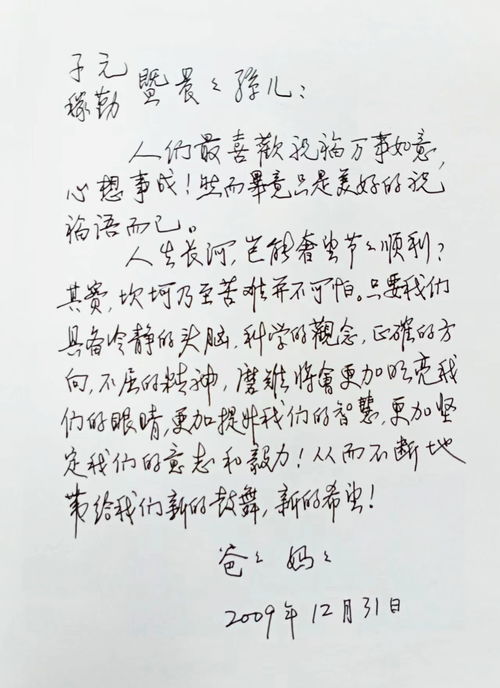 子元
稼勤 暨晨々孫儿：
人们最喜歡祝福万事如意，
心想事成！然而畢竟只是美好的祝
福语而已。
人生长河，岂能奢望节々顺利？
其實，坎坷乃至苦难并不可怕。只要我们
具备冷静的头脑，科学的觀念，正確的方
向，不屈的精神，磨難将會更加明亮我
们的眼睛，更加提升我们的智慧，更加坚
定我们的意志和毅力！从而不断地
带给我们新的鼓舞，新的希望！
爸々 妈々
2009年12月31日